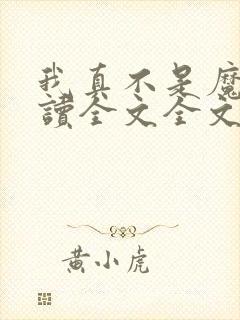 我真不是魔
讀全文全文
黄小虎